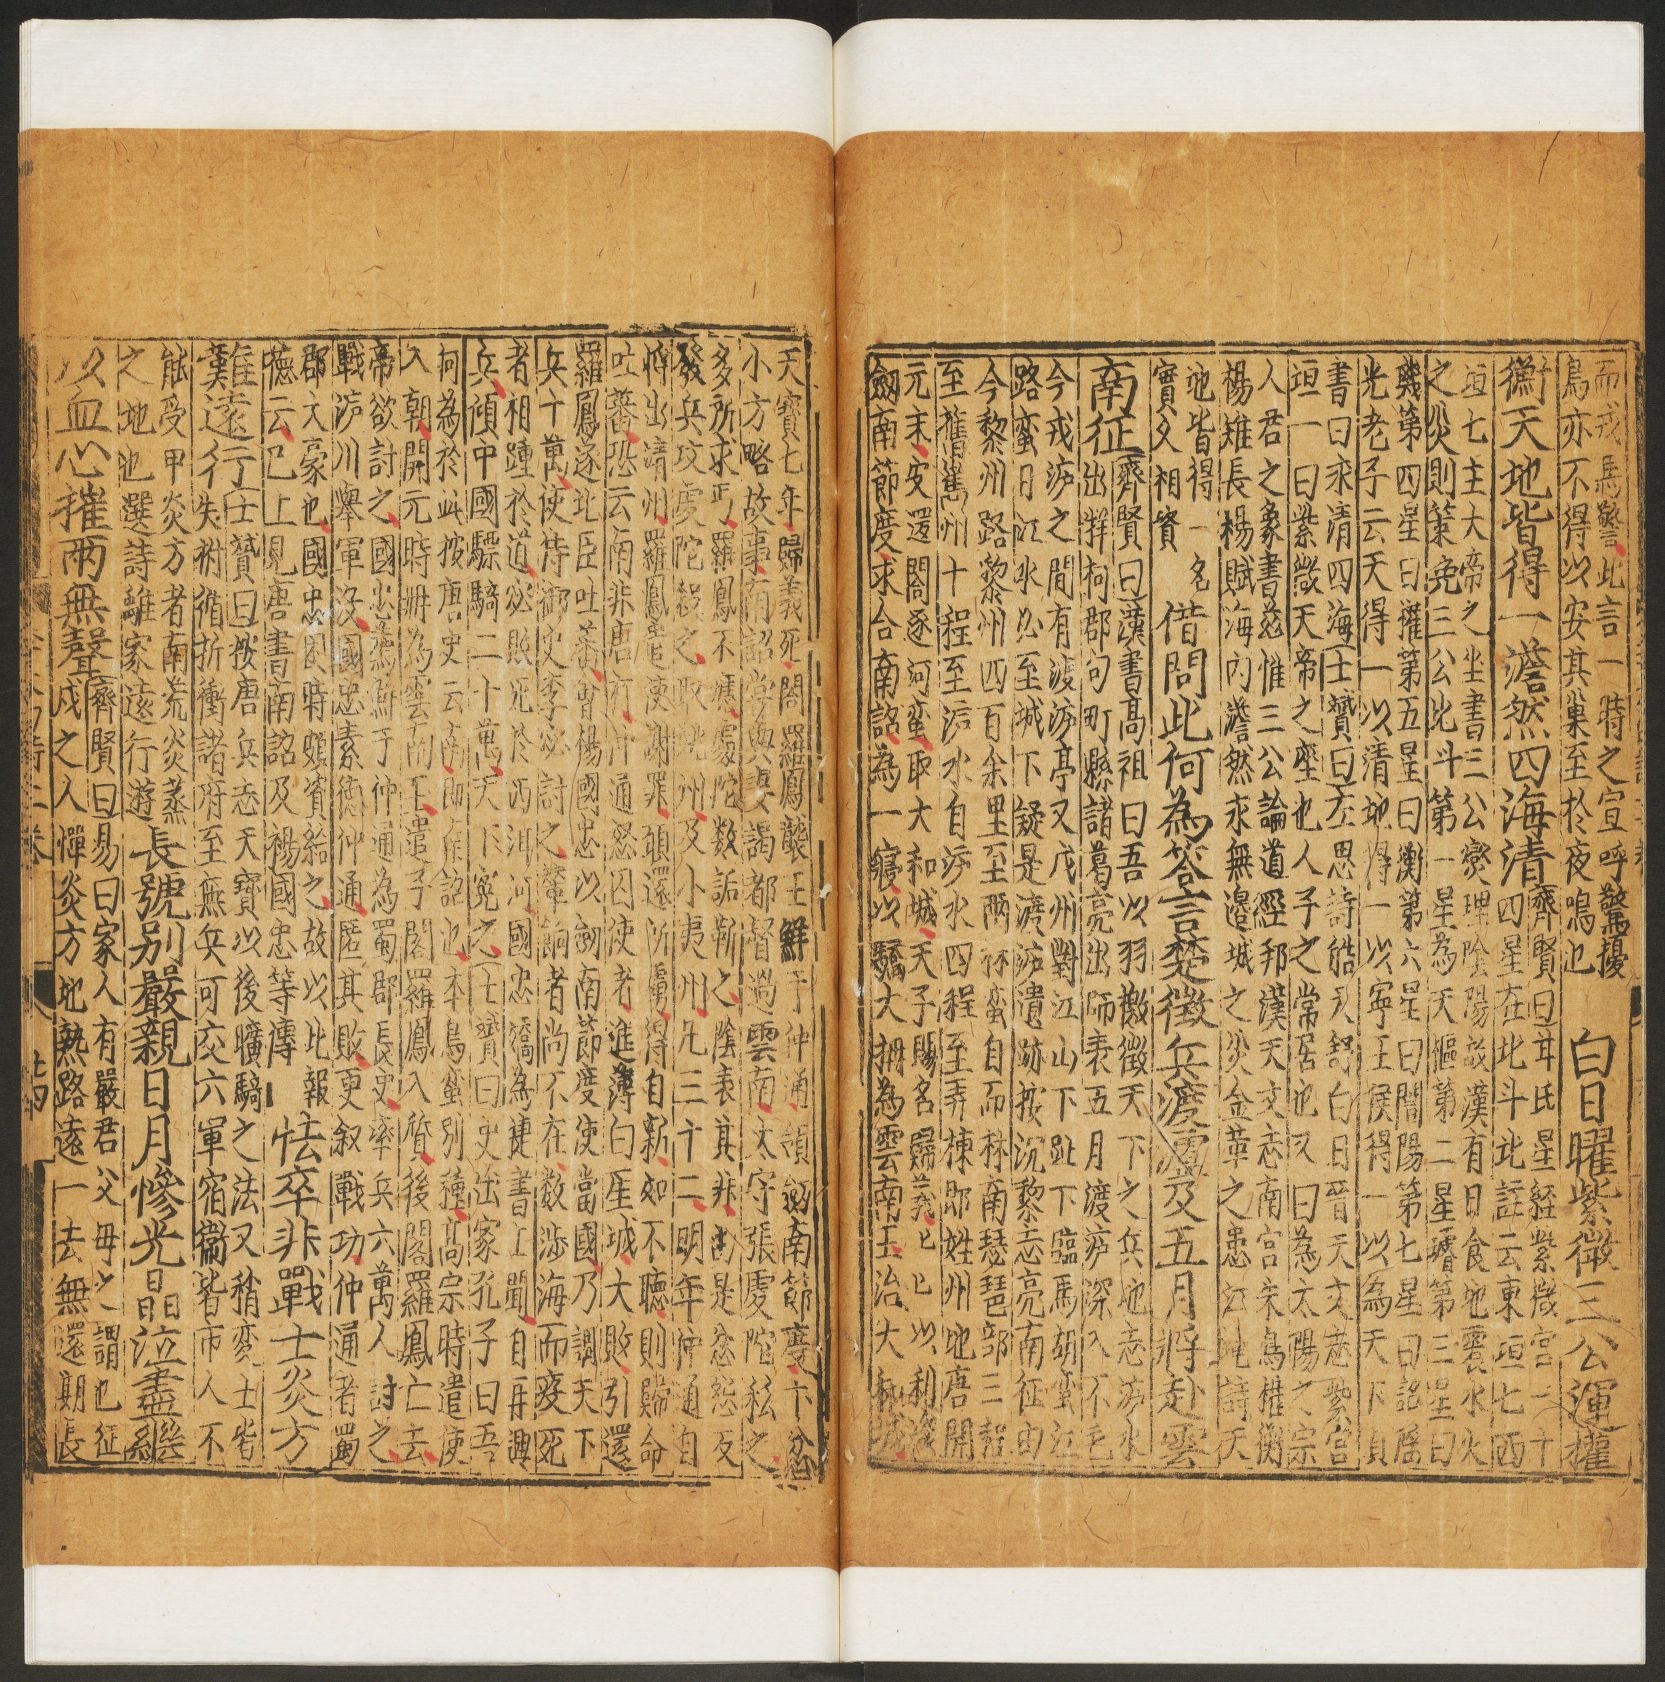 而戎馬警此言一時之宣呼驚擾
鳥亦不得以安其巢至於夜鳴也
白日曜紫微三公運權
衡天地皆得一澹然四海清
齊賢曰耳氏星經紫微宮二十
四星在北斗北註云東垣七西
垣七主大帝之坐書三公燮理陰陽故漢有日食地震水火
之災則策免三公北斗第一星為天樞第二星璿第三星曰
璣第四星曰權第五星曰衡第六星曰闓陽第七星曰
光老子云天得一以清地得一以寧王侯得一以為天下貞
書曰永清四海士贇曰左思詩皓天舒白日晉天文志紫宮
垣一曰紫微天帝之座也人子之常居也又曰為太陽之宗
人君之象書茲惟三公論道經邦漢天文志南宮朱鳥權衡
楊雄長楊賦海內澹然永無邊城之災金革之患
地皆得一名
實夕相資
借問此何為答言楚徵兵渡瀘及五月將赴雲
南征
齊賢曰漢書高祖曰吾以羽檄徵天下之兵地志瀘水
出牂柯郡句町縣諸葛亮出師表五月渡瀘深入不毛
今戎瀘之間有渡瀘亭又戎州對江山下趾下臨馬胡蠻江
路蠻曰江水必至城下疑是渡瀘遺跡按沉黎志亮南征由
今黎州路黎州四百余里至兩林蠻自兩林南瑟琶部三程
至舊嶲州十程至瀘水自瀘水四程至弄棟即姓州地唐開
元末安還閤逐河蠻取大和城天子賜名歸義已巳以利
劔南節度求合南詔為一寖以驕大冊為雲南王治大和城
天寶七年歸義死閤羅鳳襲王鮮于仲通領劔南節度卞忿
小方略故事南詔嘗與妻謁都督過雲南太守張虔陀私之
多所求丐羅鳳不應虔陀数詬靳之陰表其罪由是忿怨反
發兵攻虔陀殺之取姚州及小夷州凡三十二明年仲通自
悼出清州羅鳳遣使謝罪願還所虜得自新如不聽則歸命
吐蕃恐云南非唐有仲通怒囚使者進薄白厓城大敗引還
羅鳳遂北臣吐蕃會楊國忠以劔南節度使當國乃調天下
兵十萬使侍御史李宓討之輦餉者尚不在数涉海而疫死
者相踵於道宓敗死於西洱河國忠矯為捷書上聞自再興
兵傾中國驃騎二十萬天下冤之士贇曰史出家孔子曰吾
何為於此按唐史云南即南詔也本烏蠻別種高宗時遣使
入朝開元時冊為雲南王遣子閤羅鳳入質後閤羅鳳亡去
帝欲討之國忠薦鮮于仲通為蜀郡長史率兵六萬人討之
戰瀘川舉軍没國忠素德仲通匿其敗更叙戰功仲通者蜀
郡大豪也國忠困時頗資給之故以此報
德云巳上見唐書南詔及楊國忠等傳
怯卒非戰士炎方
難遠行
士贇曰按唐兵志天寶以後曠騎之法又稍變士皆
失拊循折衝諸府至無兵可交六軍宿衞皆市人不
能受甲炎方者南荒炎蒸
之地也選詩離家遠行遊
長號别嚴親日月慘光晶泣盡繼
以血心摧兩無聲
齊賢曰易曰家人有嚴君父母之謂也征
戍之人憚炎方地熱路遠一去無還期長